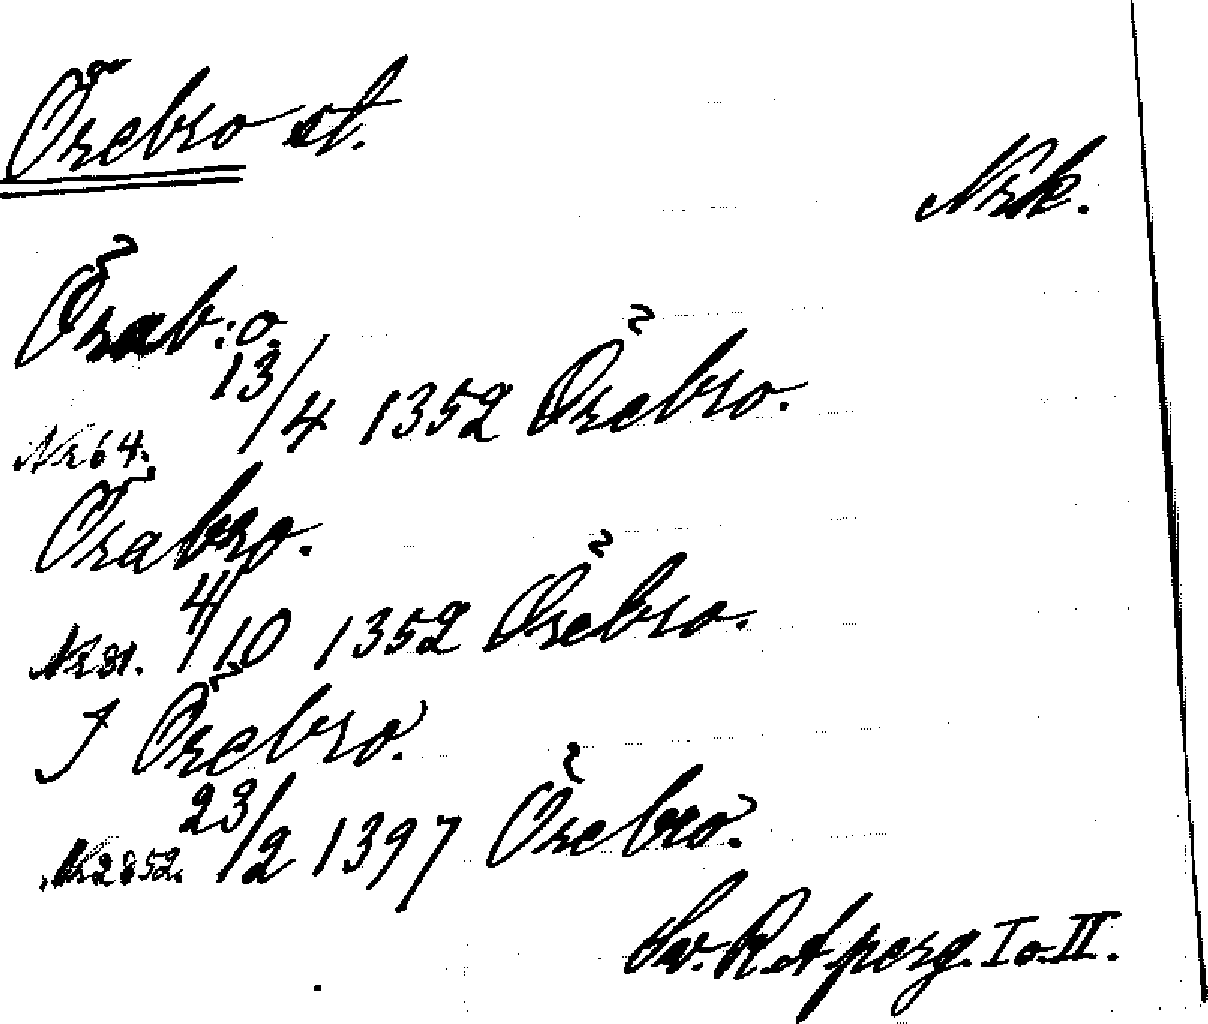 Örebro st.
Nrk.
Örab:o.
Nr 64. 13/4 1352 Örebro.
Örabro.
Nr 81. 4/10 1352 Örebro.
I Örebro.
Nr 2852. 23/2 1397 Örebro.
Sv. R. A. perg. I o. II.